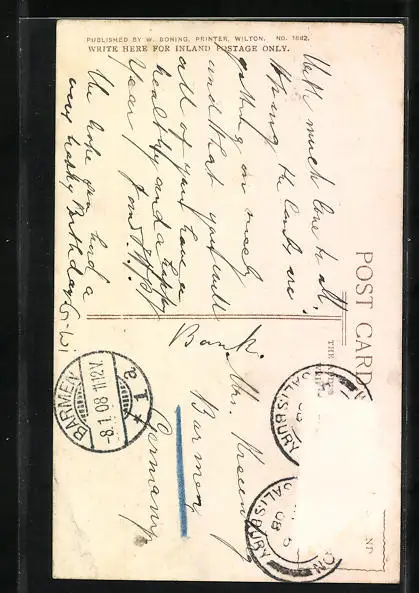 PUBLISHED BY W. BONING, PRINTER, WILTON. NO. 1842.
WRITE HERE FOR INLAND POSTAGE ONLY.
POST CARD
THE
With much love to all.
Hoping the cards are
getting on nicely
and that you will
all of you have a
healthy and a happy
Year from
We hope you had a
very happy Birthday
Mr.
Bank.
Barmen
Germany
BARMEN
8.1.08 11-12V.
* 1 a
SALISBURY
08
SALISBURY
08